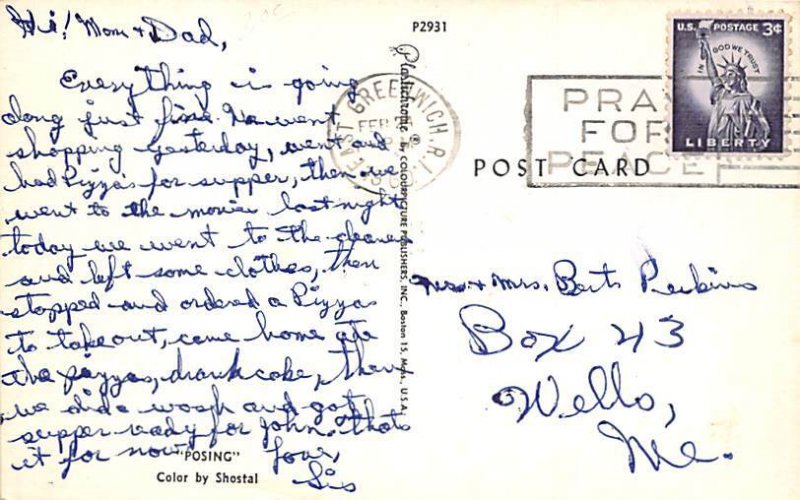 Hi! Mom + Dad,
Everything is going
along just fine. We went
shopping yesterday, went and
had Pizza's for supper, then we
went to the movie last night
today we went to the cleaners
and left some clothes, then
stopped and ordered a Pizzas
to takeout, came home ate
the pizzas, drank coke, then
we did a wash and got
supper ready for John. Thats
it for now Love,
Sis
"POSING"
Color by Shostal
P2931
Plastichrome ® by COLOURPICTURE PUBLISHERS, INC., Boston 15, Mass., U.S.A.
EAST GREENWICH, R.I.
FEB
PRAY
FOR
PEACE
U.S. POSTAGE 3¢
IN GOD WE TRUST
LIBERTY
POST CARD
Mr + Mrs. Bert Perkins
Box 43
Wells,
Me.